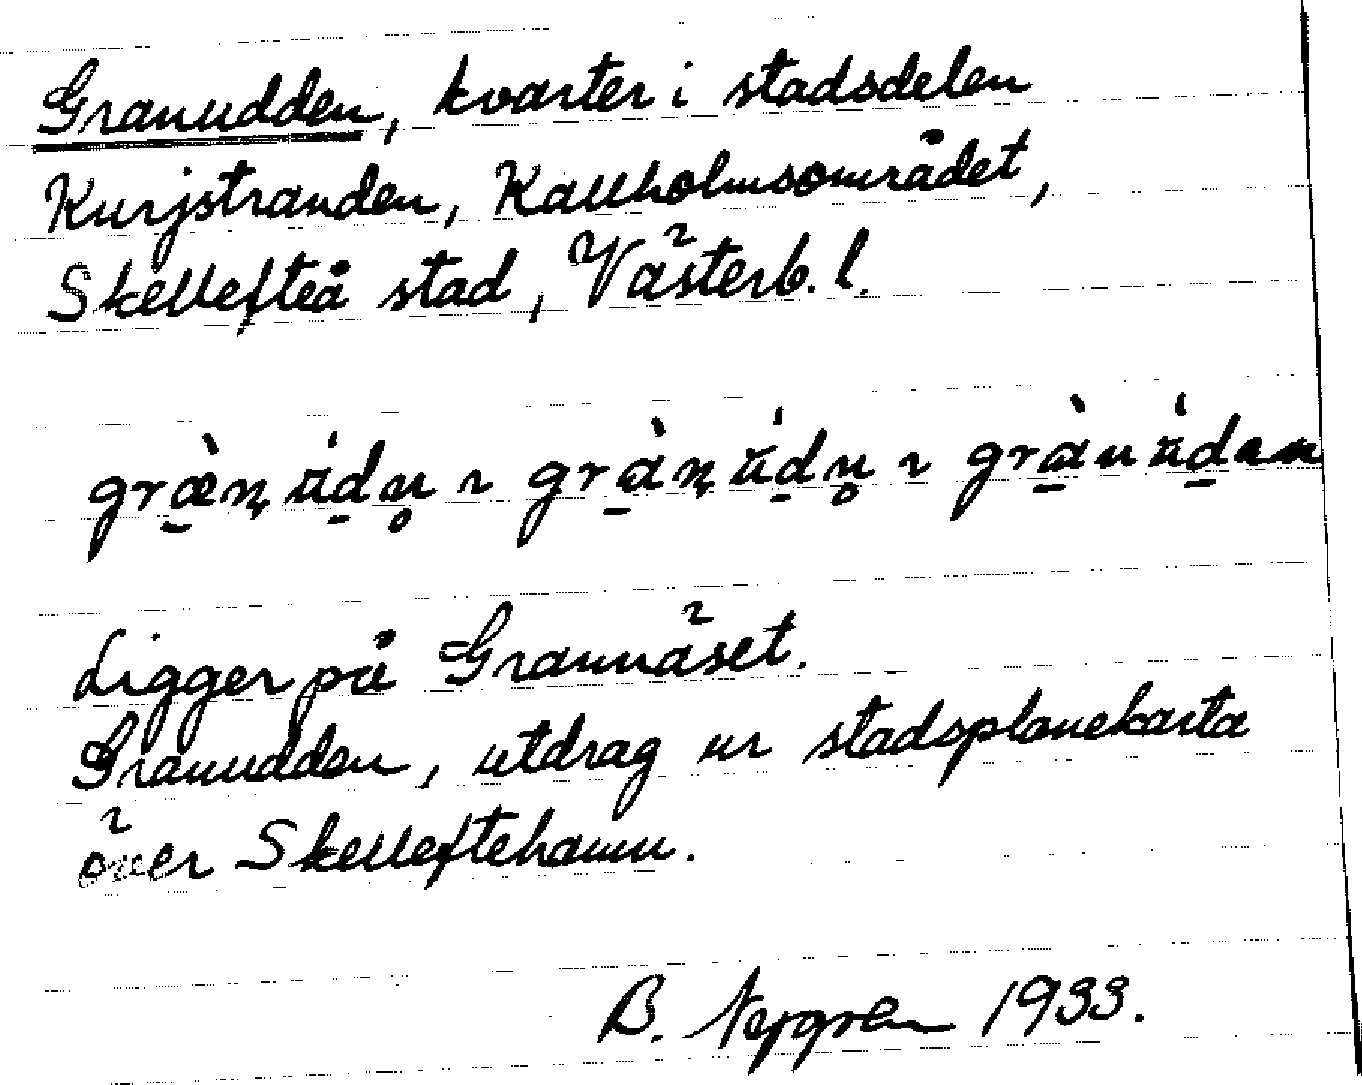 Granudden, kvarter i stadsdelen
Kurjstranden, Kallholmsområdet,
Skellefteå stad, Västerb. l.
Ligger på Grannäset.
Granudden, utdrag ur stadsplanekarta
över Skelleftehamn.
B. 1933.